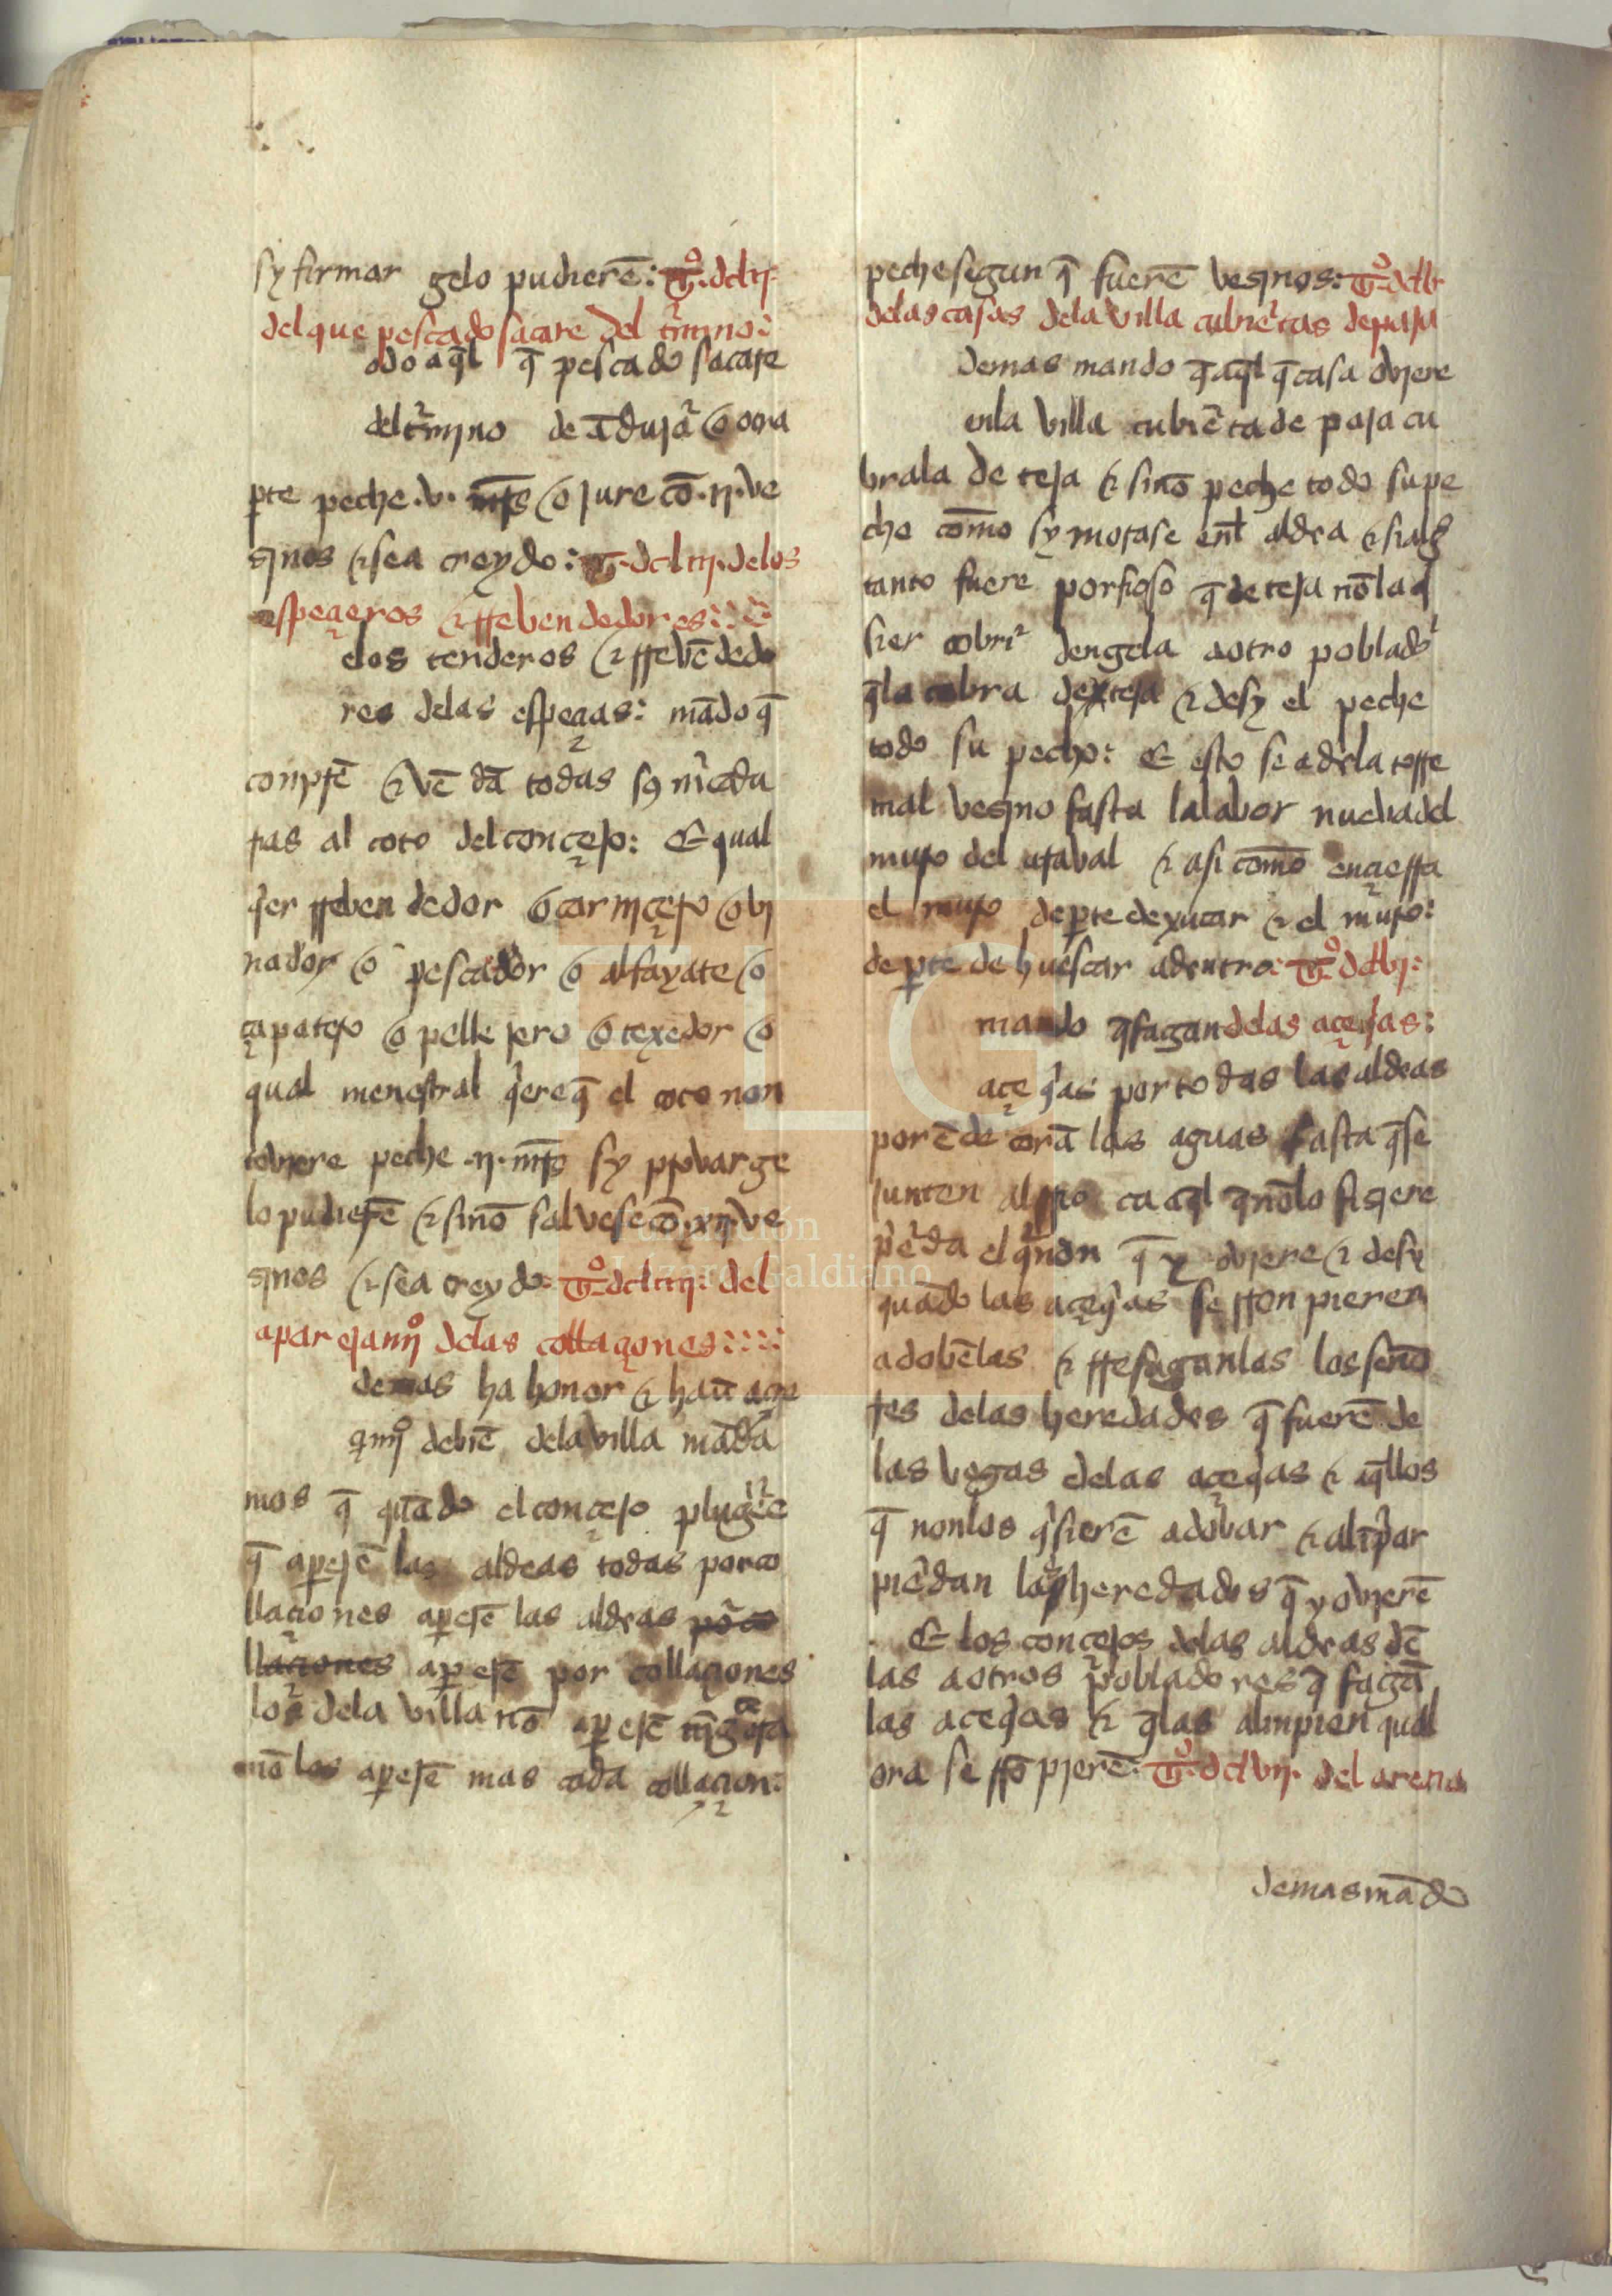 sy firmar gelo pudierē: T̊.dclij.
del que pescado sacare del t̃mino:
odo aq̄l q̄ pescado sacare
del t̃mjno de ādujā o otra
pte peche .v. mr̄s o jure cō .ij. ve
sjnos ⁊ sea creydo: T.dcliij. delos
espeçieros ⁊ rrebendedores:
elos tenderos ⁊ rrevēdedo
res delas espeçias: mādo q̄
conprē ⁊ vēdā todas sꝯ m̃cadu
rias al coto del conçejo: E qual
q̇er rrebendedor o carnjçero o vj
nador o pescador o alfayate o
çapatero o pellejero o texedor o
qual menestral q̇ere q̄ el coto non
tovjere peche .ij. mr̄s sy provar ge
lo pudierē ⁊ sinō salvese cō .xij. ve
sjnos ⁊ sea creydo: T̊.dcliiij: del
aparejamj̊ delas collaçiones::::
demas ha honor ⁊ haū açre
çimj̊ de biē dela villa māda
mos q̄ quādo el conçejo plugiẽre
q̄ aparejē las aldeas todas por co
llaçiones aparejē las aldeas por co
llaçiones aparejē por collaçiones
los dela villa nō aparejē
nō los aparejē mas cada collaçion:
peche segun q̄ fuerē vesjnos: T̊.dclv
delas casas dela villa cubiẽtas de paja
demas mando q̄ aq̄l q̄ casa ovjere
enla villa cubiẽta de paja cu
brala de teja ⁊ sinō peche todo su pe
cho com̄o sy morase en̄l aldea ⁊ si alḡ
tanto fuere porfioso q̄ de teja nō la q̇
sier cobrir dengela a otro poblador
q̄la cobra de teja ⁊ desy el peche
todo su pecho: E esto sea dela torre
mal vesjno fasta la labor nueva del
muro del arraval ⁊ asi com̄o ençierra
el muro de pte de xucar ⁊ el muro:
de pte de huescar adentro: T̊.dclvj:
mando q̄ fagan delas açeq̇as:
açeq̇as por todas las aldeas
por ēde corrā las aguas fasta q̄ se
junten al rrio ca aq̄l q̄ nōlo fisjere
piẽda el q̇ñon q̄ y ovjere ⁊ desy
quādo las açeq̇as se rronpieren
adobēlas ⁊ rrefaganlas los seño
res delas heredades q̄ fuerē de
las vegas delas açeq̇as ⁊ aq̄llos
q̄ nonlos q̇sierē adobar ⁊ alīṗar
piẽdan las heredades q̄ y ovjerē
E los conçejos delas aldeas dē
las a otros pobladores q̄ fagā
las açeq̇as ⁊ q̄las alinpien qual
ora se rrōpierē: T̊.dclvij. del arena
demas mādo